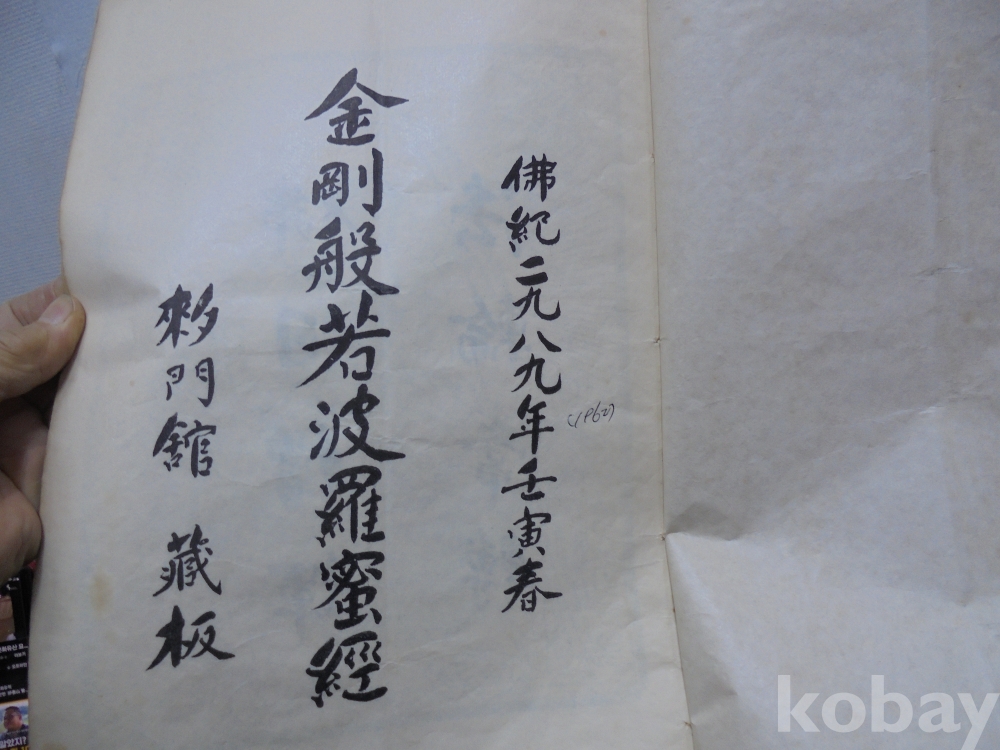 佛紀二九八九年壬寅春
(1962)
金剛般若波羅蜜經
門館 藏板
kobay